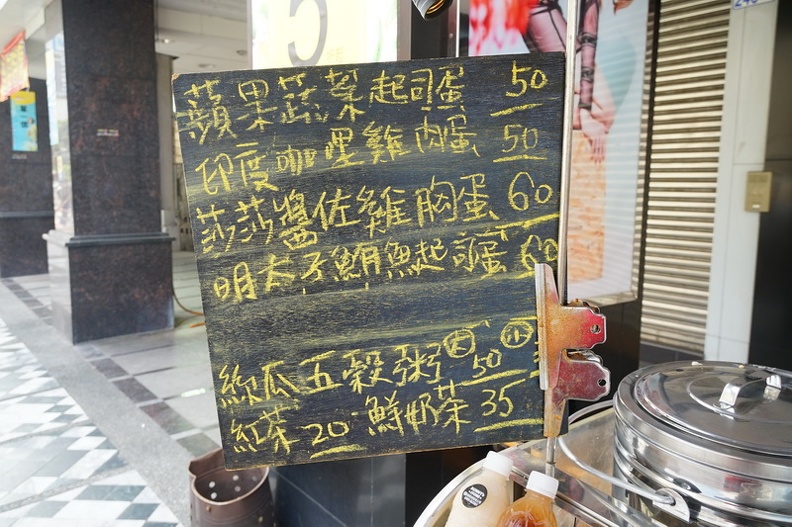 5
蘋果蔬菜起司蛋 50
印度咖哩雞肉蛋 50
莎莎醬佐雞胸蛋 60
明太子鮪魚起司蛋 60
絲瓜五穀粥 大 50 小
紅茶 20 鮮奶茶 35